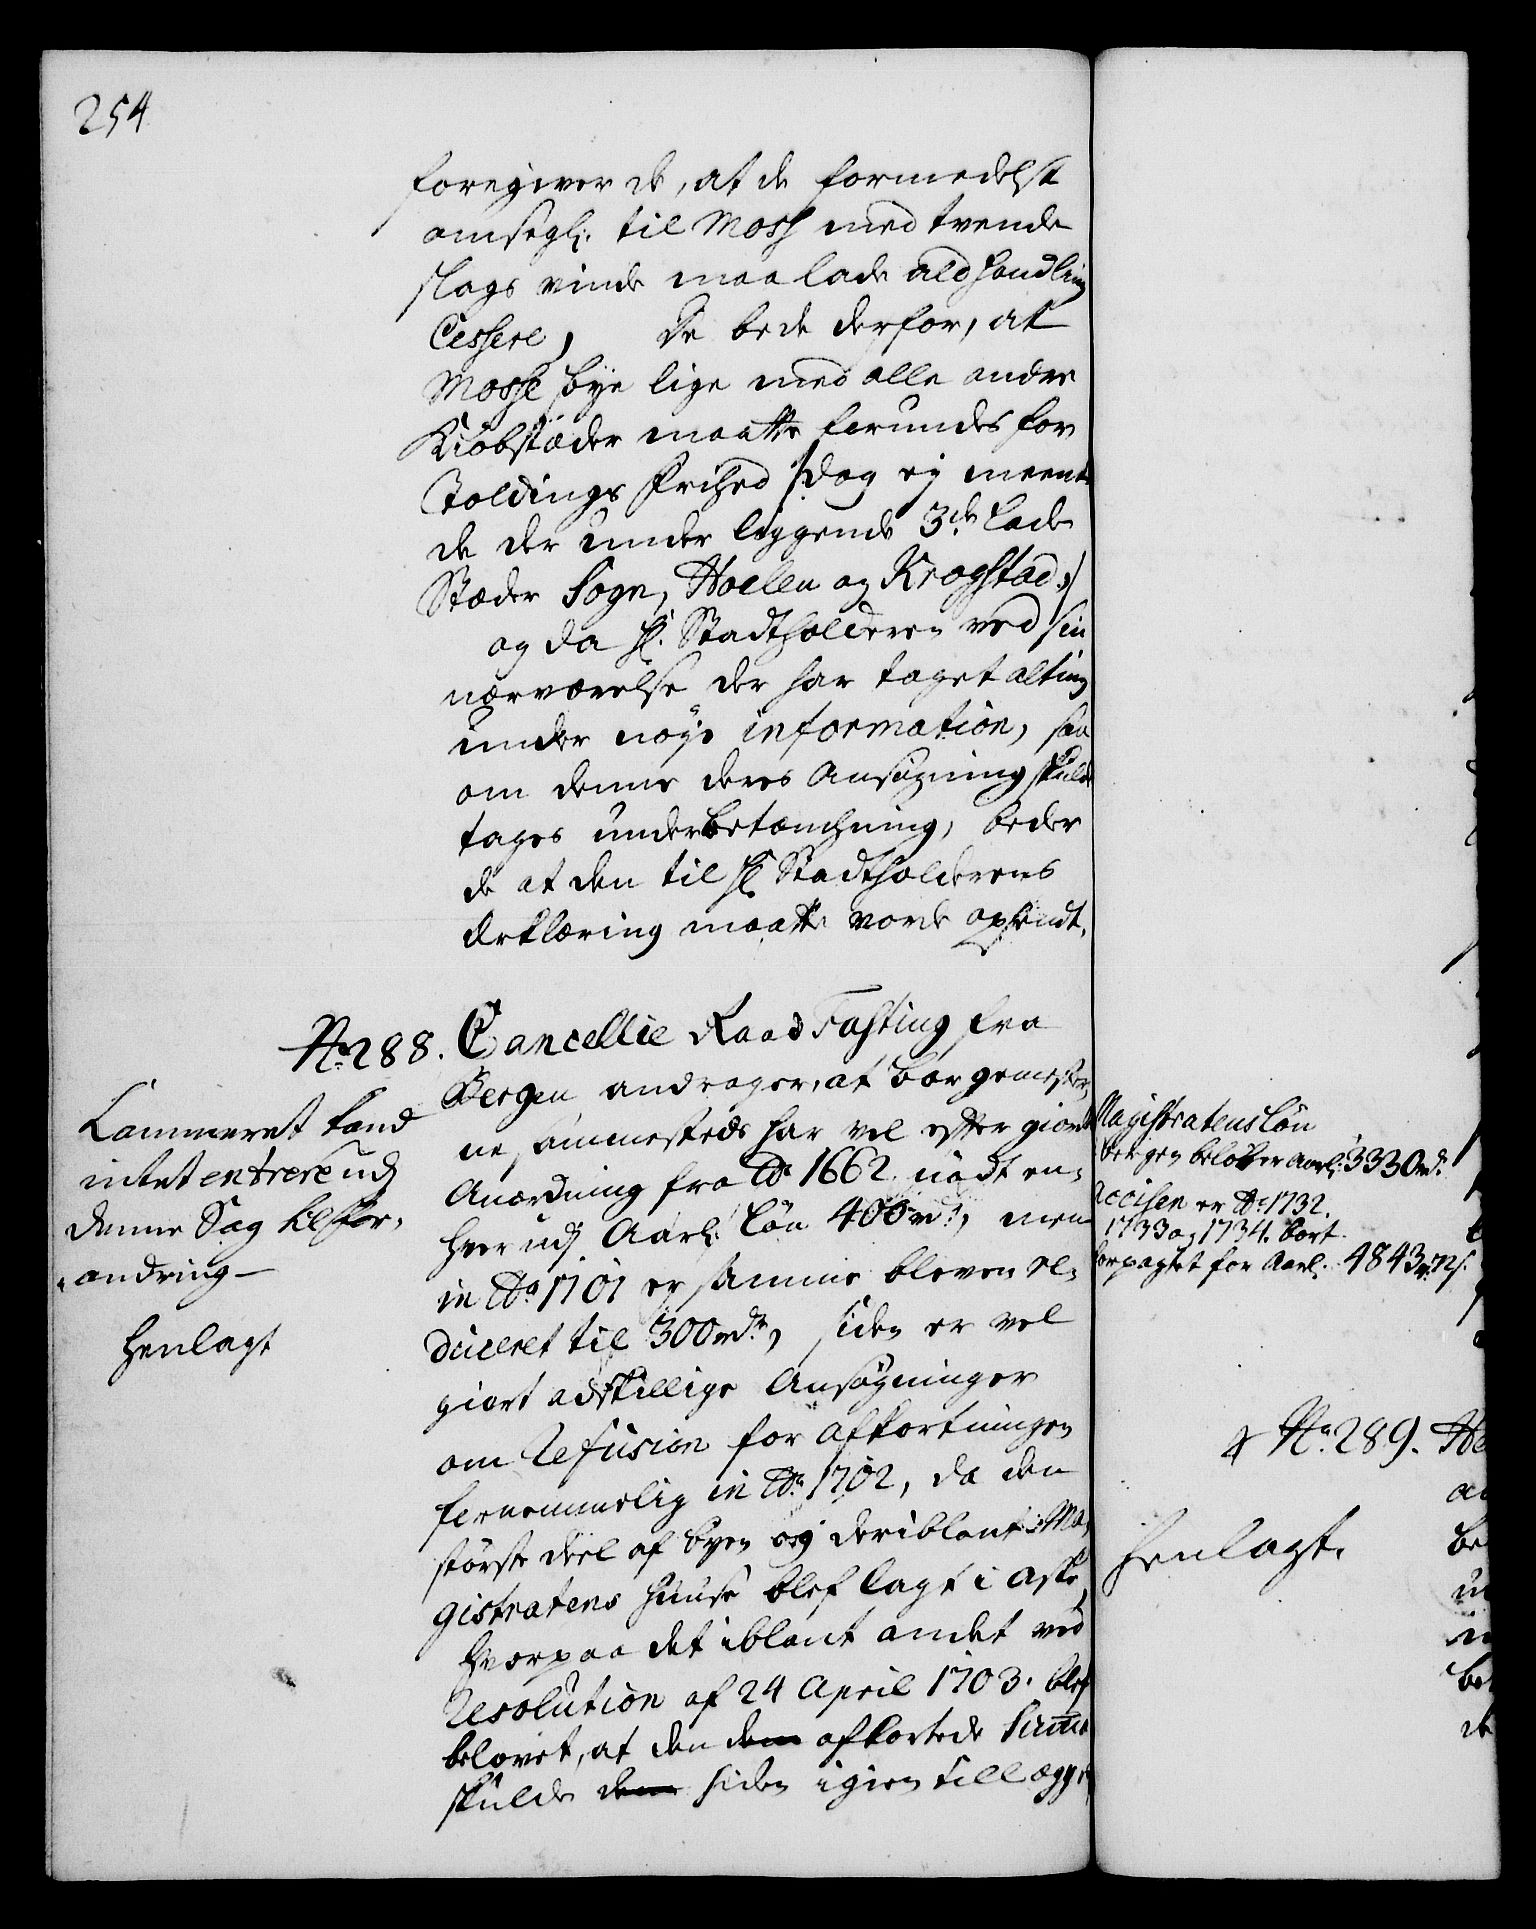 254
foregiver de, at de formedelst
omsegl: til Moss med tvende
slags vinde maa lade ald handling
Cessere, De bede derfor, at
Mosse bye lige med alle andre
Kiøbstæder maatte forundes for
Toldings frihed /: dog ej meent
de der under liggende 3de Lade
Stæder Sogn, Hollen og Krogstad :/
og da H: Stadtholderen ved sin
nærværelse der har taget alting
under nøye information, saa
om denne deres Ansøgning skulde
tages under betænchning, beder
de at den til H: Stadtholderens
Erklæring maatte vorde opsendt.
No 288. Cancellie Raad Fasting fra
Bergen andrager, at borgemester,
ne sammesteds har vel efter giordt
Anordning fra Ao 1662 nødt en,
hver udj Aarl: Løn 400 rdr, men
in Ao 1701 er samme bleven re,
duceret til 300 rdr, siden er vel
giort adskillige Ansøgninger
om Refusion for afkortningen
fornemmelig in Ao 1702, da den
største deel af byen og deriblant Ma,
gistratens huuse blef lagt i aske,
hvorpaa det iblant andet ved
Resolution af 24 April 1703. blef
belovet, at den dem afkortede Summa
skulde dem siden igien tillægges
Cammeret kand
intet entrere udj
denne Sag til for,
andring
henlagt
Magistratens Løn
bergen beløber Aarl: 3330 rd:
Accisen er Ao 1732.
1733 og 1734. bort
forpagtet for Aarl: 4843 rd:
No 289.
henlagt.